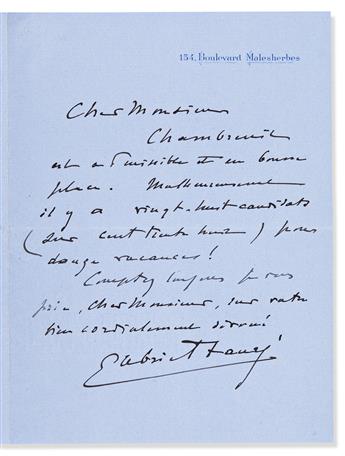 154, Boulevard Malesherbes
Cher Monsieur
Chambreuil
est admissible et en bonne
place. Malheureusement
il y a vingt-huit candidats
(sur cent trente huit) pour
douze vacances!
Comptez toujours je vous
prie, cher Monsieur, sur votre
bien cordialement dévoué
Gabriel Fauré